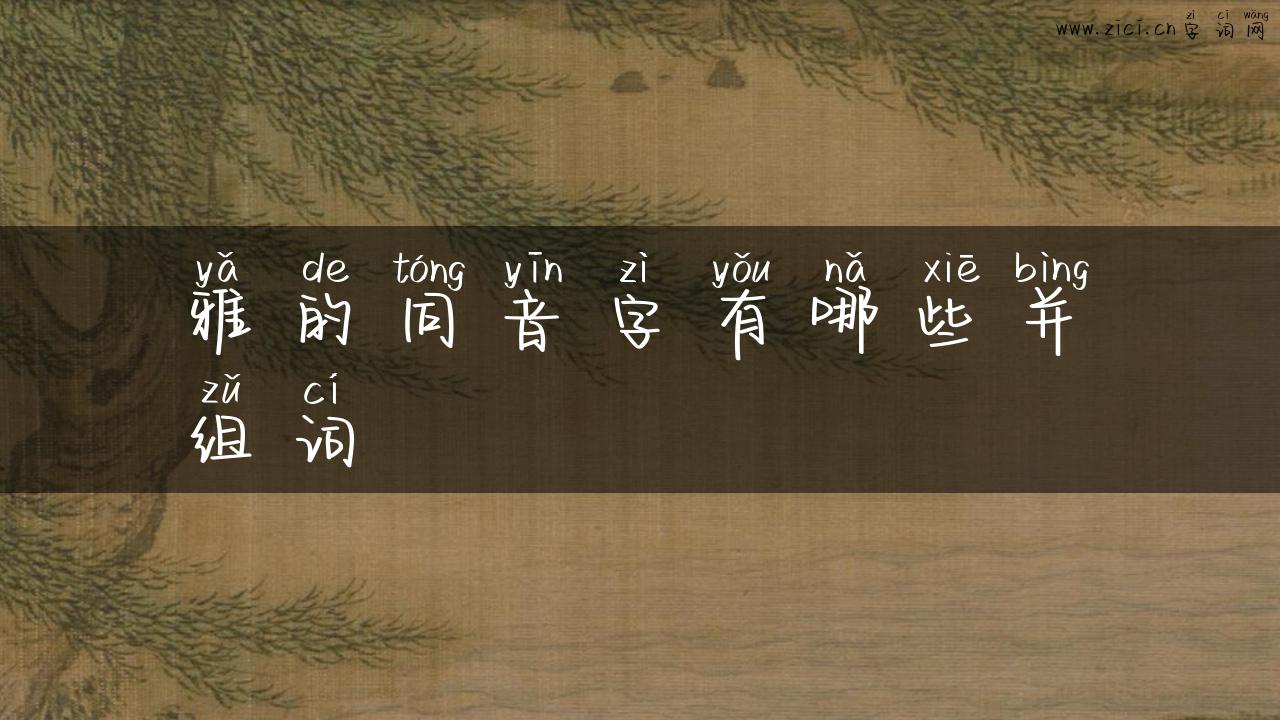 zì cí wǎng
www.zici.cn 字词网
yǎ de tóng yīn zì yǒu nǎ xiē bìng
雅的同音字有哪些并
zǔ cí
组词